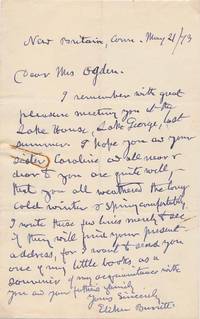 New Britain, Conn. May 21/73
Dear Mrs Ogden.
I remember with great
pleasure meeting you at the
Lake House, Lake George, last
summer. I hope you and your
sister Caroline are all near &
dear to you are quite well,
that you all weathered the long
cold winter & spring comfortably.
I write these few lines merely to see
if they will find your present
address, for I want to send you
one of my little books as a
souvenir of my acquaintance with
you and your father's family
Yours Sincerely,
Elihu Burritt